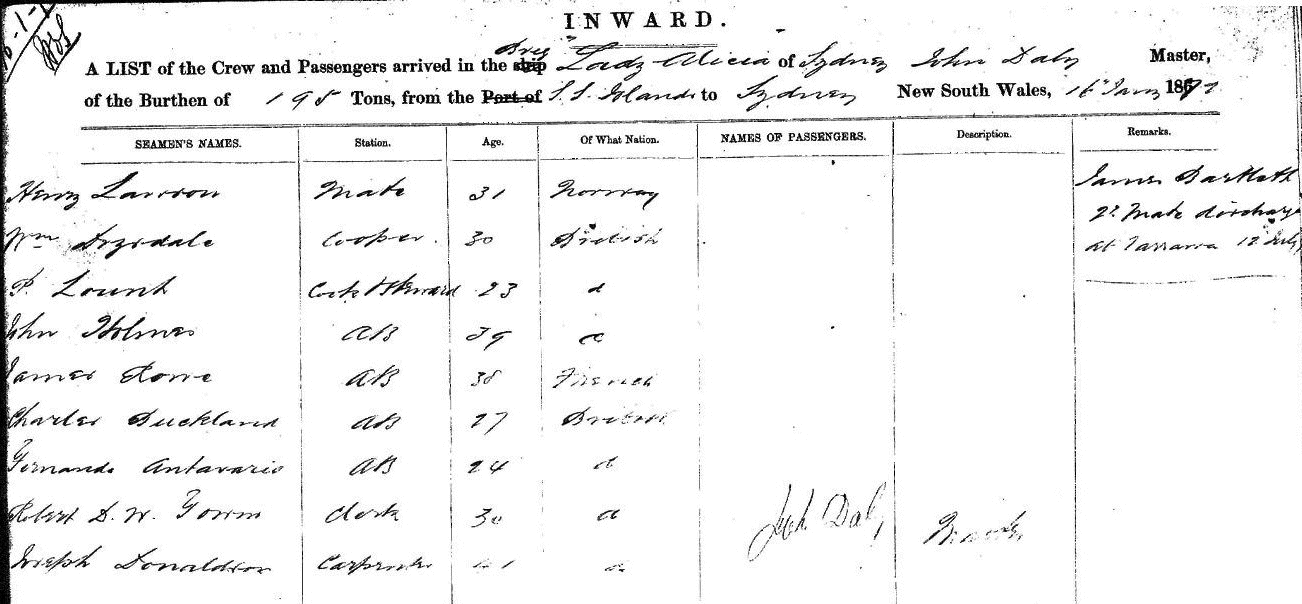 INWARD.
A LIST of the Crew and Passengers arrived in the ship Brig Lady Alicia of Sydney John Daly Master,
of the Burthen of 195 Tons, from the Port of S. S. Islands to Sydney New South Wales, 16 Jany 1872
SEAMEN'S NAMES. Station. Age. Of What Nation. NAMES OF PASSENGERS. Description. Remarks.
Henry Lawson Mate 31 Norway James Bartlett
2d Mate discharge
Wm Drysdale Cooper. 30 British at 12 July
P. Lount Cook & Steward 23 d
John Holmes AB 39 d
James Rowe AB 38 French
Charles Buckland AB 27 British
Fernando Antavario AB 24 d
Robert D. W. Clerk 30 d John Daly Master
Joseph Donaldson Carpenter 41 d